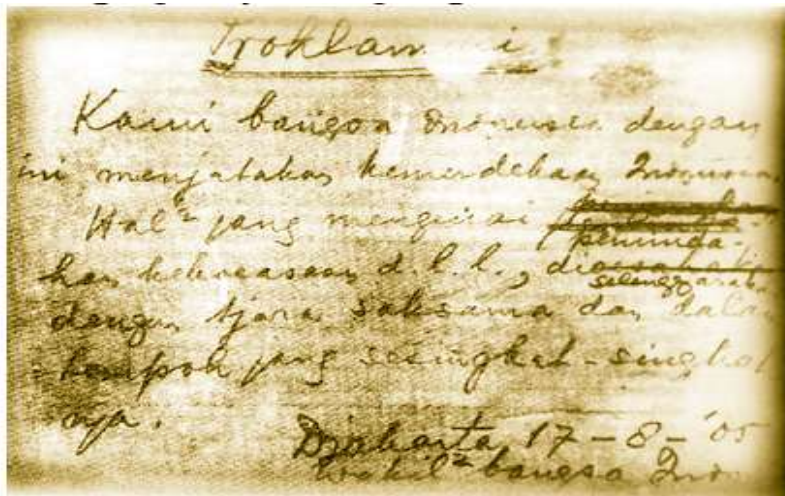 Proklamasi
Kami bangsa Indonesia dengan
ini menjatakan kemerdekaan Indonesia.
Hal² jang mengenai
peminda-
han kekoeasaan d.l.l.,
selenggarakan
dengan tjara saksama dan dalam
tempoh jang sesingkat-singkat
nja.
Djakarta 17-8-'05
Wakil² bangsa Indon